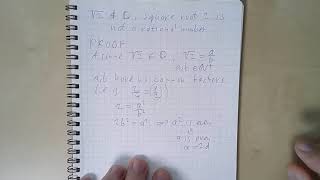 √2 ∉ Q, square root 2 is
not a rational number
PROOF
Assume √2 ∈ Q, √2 = a/b
a,b have no common factors
2 = a²/b²
2b² = a² ⇒ a² is even
⇓
a is even
a = 2d